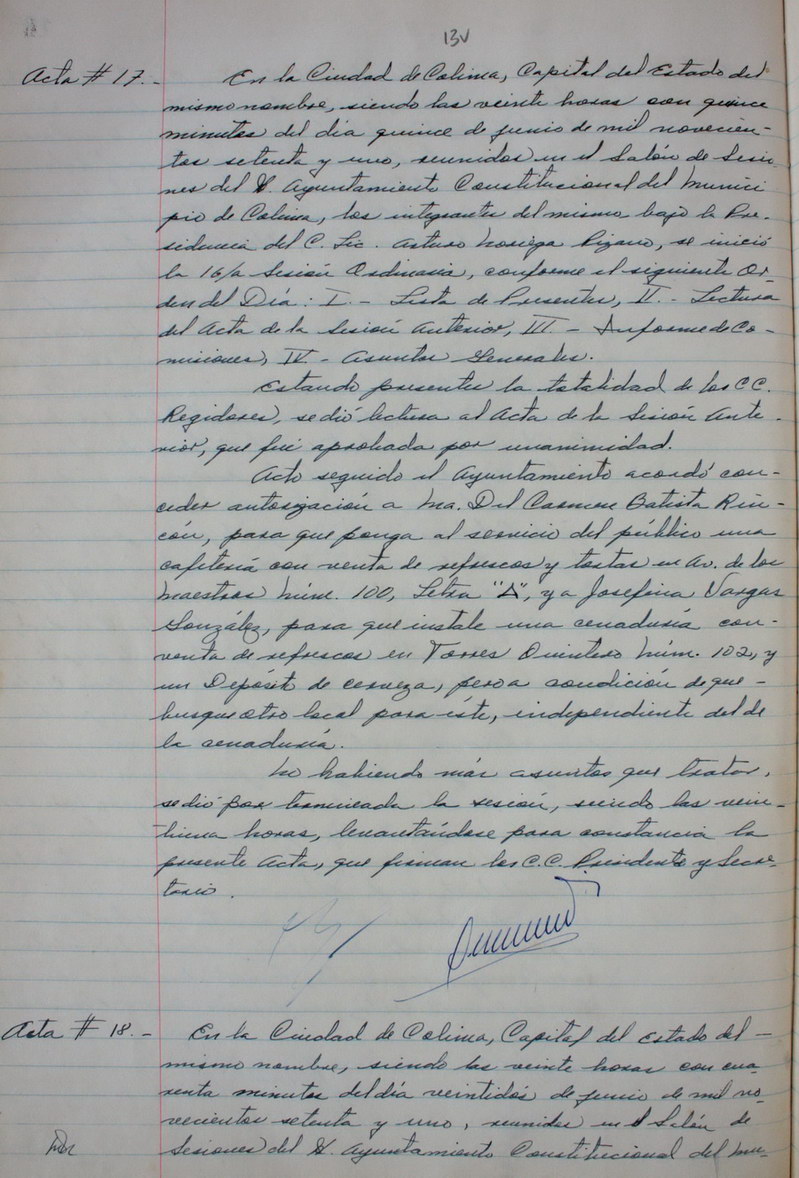 13v
Acta # 17.- En la Ciudad de Colima, Capital del Estado del
mismo nombre, siendo las veinte horas con quince
minutos del día quince de junio de mil novecien-
tos setenta y uno, reunidos en el Salón de Sesio-
nes del H. Ayuntamiento Constitucional del Munici
pio de Colima, los integrantes del mismo bajo la Pre-
sidencia del C. Lic. Arturo Noriega Pizano, se inició
la 16/a Sesión Ordinaria, conforme el siguiente Or-
den del Día: I.- Lista de Presentes, II.- Lectura
del Acta de la Sesión Anterior, III - Informe de Co-
misiones, IV - Asuntos Generales.
Estando presentes la totalidad de los CC.
Regidores, se dió lectura al Acta de la Sesión Ante-
rior, que fué aprobada por unanimidad.
Acto seguido el Ayuntamiento acordó con-
ceder autorización a Ma. Del Carmen Batista Rin-
cón, para que ponga al servicio del público una
cafetería con venta de refrescos y tortas en Av. de los
Maestros Núm. 100, Letra "A", y a Josefina Vargas
González, para que instale una cenaduría con-
venta de refrescos en Torres Quintero Núm. 102, y
un Depósit de cerveza, pero a condición de que-
busque otro local para éste, independiente del de
la cenaduría.
No habiendo más asuntos que tratar,
se dió por terminada la sesión, siendo las vein-
tiuna horas, levantándose para constancia la
presente Acta, que firman los C.C. Presidente y Secre-
tario.
Acta # 18.- En la Ciudad de Colima, Capital del Estado del -
mismo nombre, siendo las veinte horas con cua-
renta minutos del día veintidós de junio de mil no-
vecientos setenta y uno, reunidos en el Salón de
Sesiones del H. Ayuntamiento Constitucional del Mu-